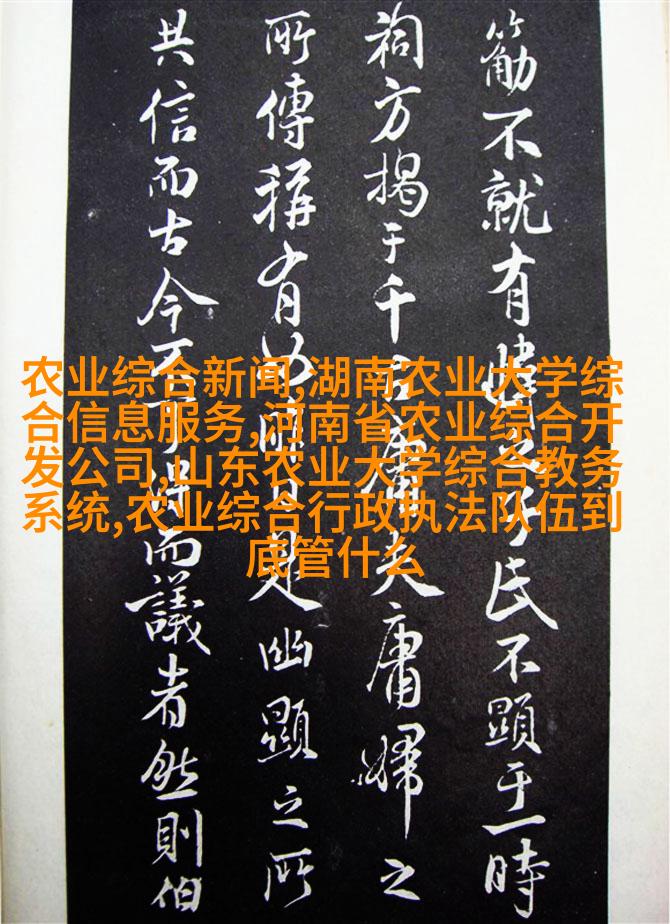 不就有 之子氏不顯于一時
祠方揭于千 庸夫庸婦之
所傳稱有 是幽顯之所
共信而古今不可得而議者然則伯
农业综合新闻,湖南农业大学综
合信息服务,河南省农业综合开
发公司,山东农业大学综合教务
系统,农业综合行政执法队伍到
底管什么